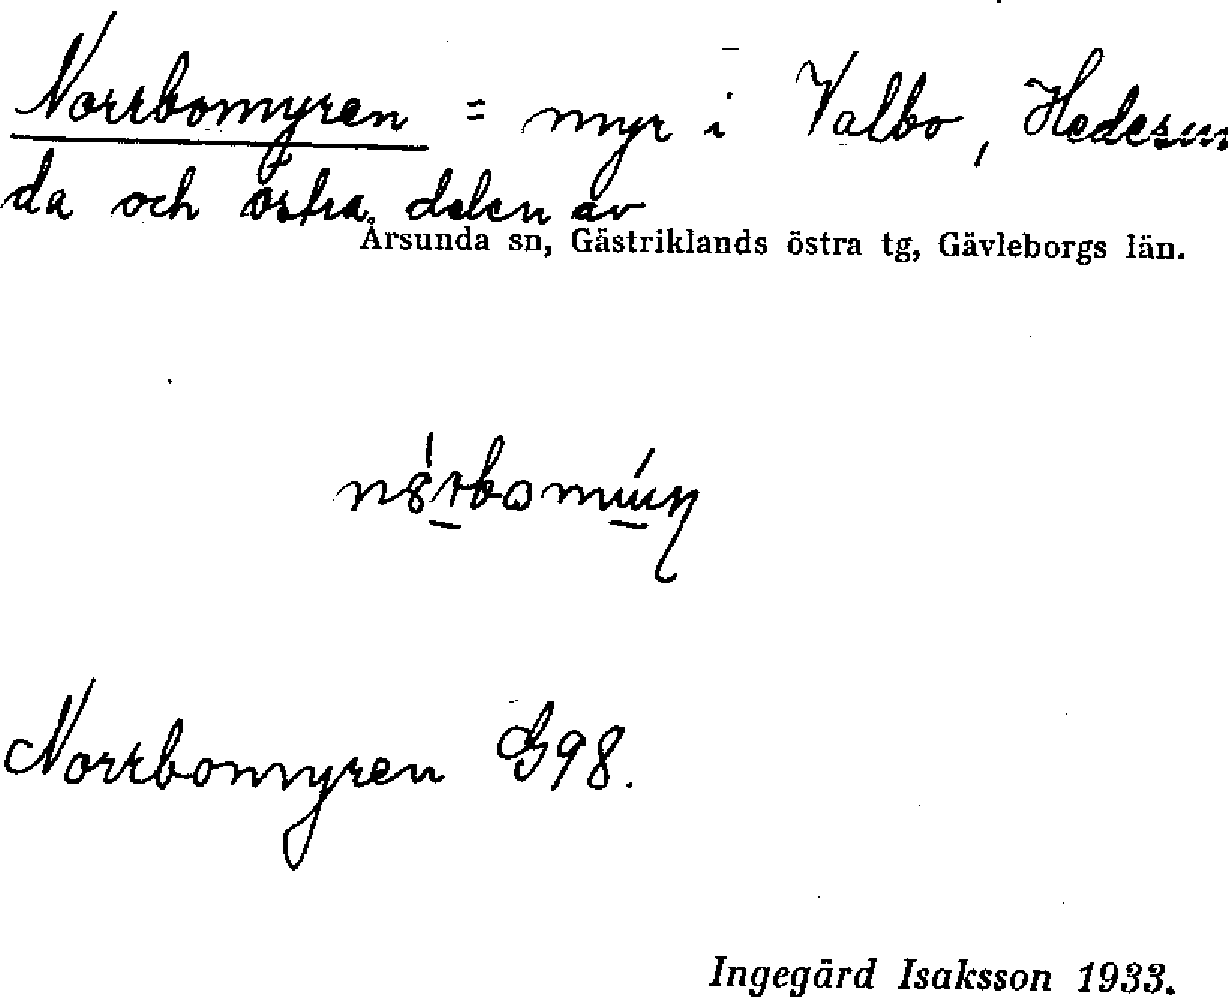 Norrbomyren = myr i Valbo, Hedesun
da och östra delen av
Årsunda sn, Gästriklands östra tg, Gävleborgs län.
Norrbomyren G98.
Ingegärd Isaksson 1933.